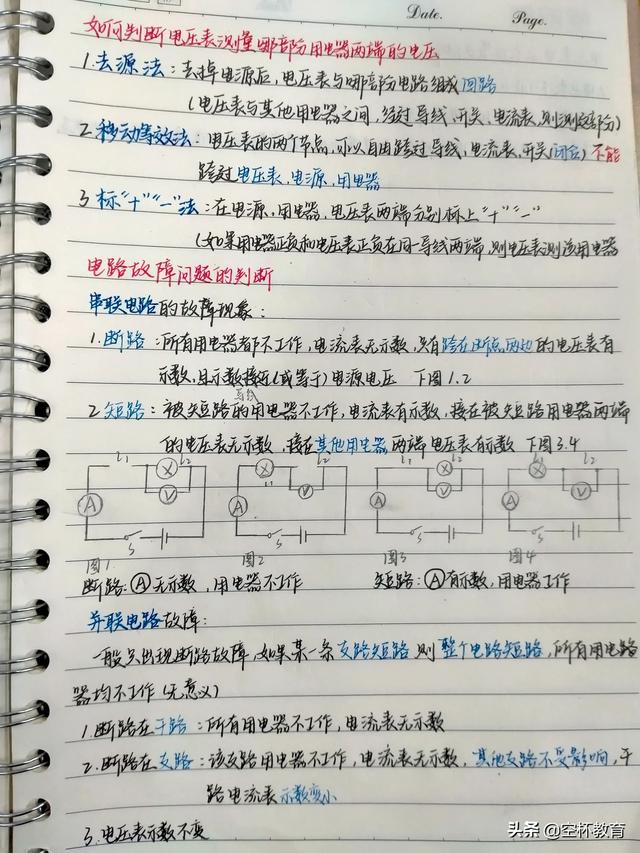 Date. Page.
如何判断电压表测量哪部分用电器两端的电压
1.去源法：去掉电源后，电压表与哪部分电路组成回路
(电压表与其他用电器之间，经过导线、开关、电流表，则测该部分)
2.移动等效法：电压表的两个节点，可以自由跨过导线，电流表，开关(闭合)不能
跨过电压表，电源，用电器
3.标“十”“一”法：在电源，用电器，电压表两端分别标上“十”“一”
(如果用电器正负和电压表正负在同一导线两端，则电压表测该用电器
电路故障问题的判断
串联电路的故障现象：
1.断路：所有用电器都不工作，电流表无示数，只有跨在断点两边的电压表有
示数，且示数接近(或等于)电源电压 下图1.2
导线
2.短路：被短路的用电器不工作，电流表有示数，接在被短路用电器两端
的电压表无示数，接在其他用电器两端电压表有示数 下图3.4
L1 L2 L1 L2 L1 L2 L1 L2
X X X X
A V A V A V A V
S S S S
图1 图2 图3 图4
断路：A无示数，用电器不工作 短路：A有示数，用电器工作
并联电路故障：
一般只出现断路故障，如果某一条支路短路则整个电路短路，所有用电路
器均不工作(无意义)
1.断路在干路：所有用电器不工作，电流表无示数
2.断路在支路：该支路用电器不工作，电流表无示数，其他支路不受影响，干
路电流表示数变小
3.电压表示数不变
头条 @空杯教育